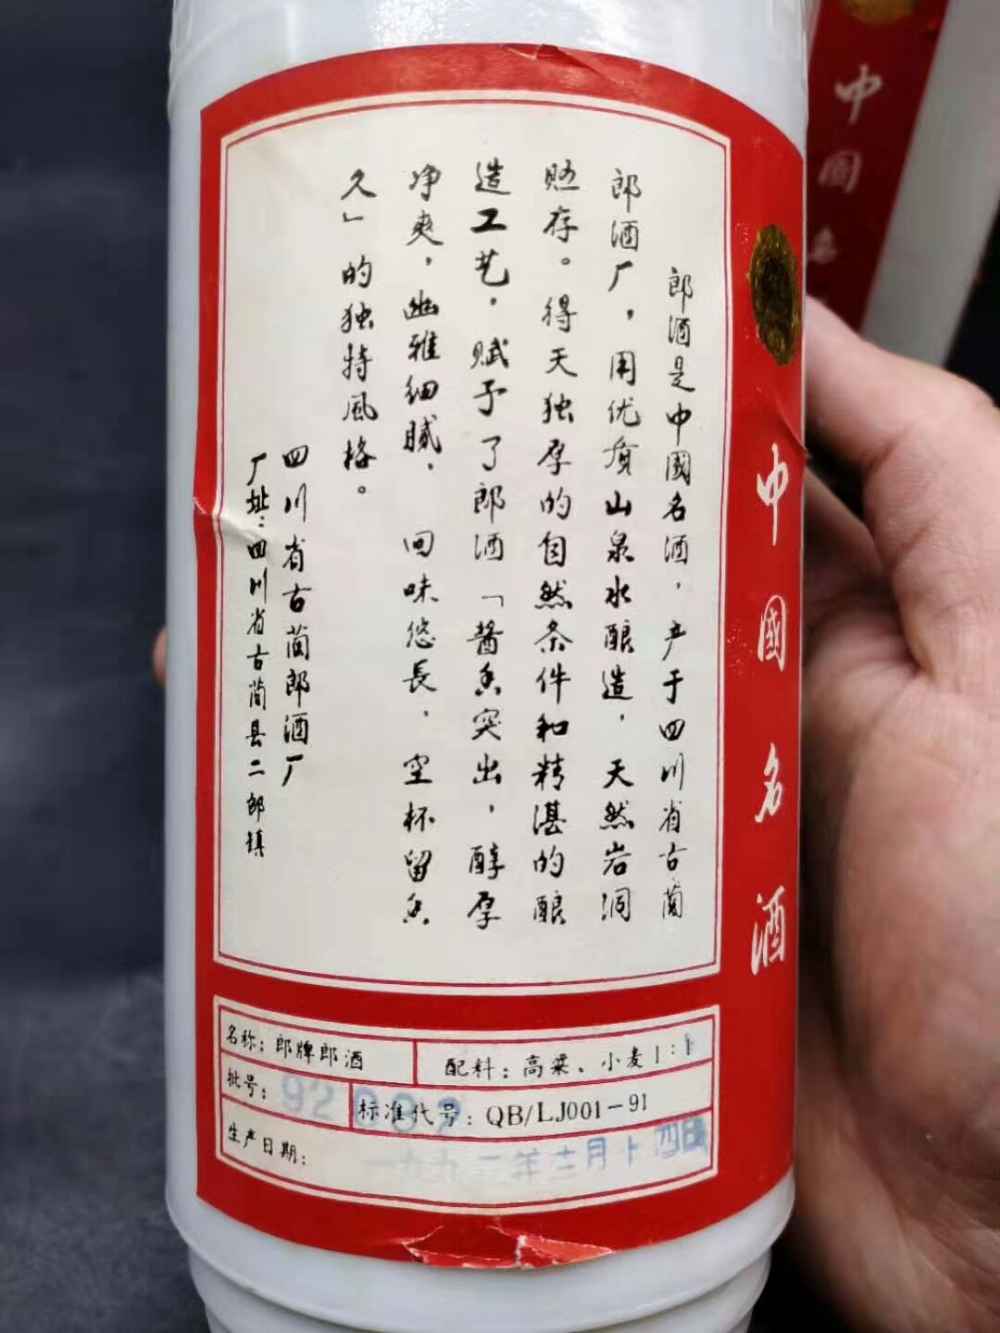 郎酒是中國名酒，产于四川省古蔺
郎酒厂，用优质山泉水酿造，天然岩洞
贮存。得天独厚的自然条件和精湛的酿
造工艺，赋予了郎酒「酱香突出，醇厚
净爽，幽雅细腻，回味悠長，空杯留香
久」的独特风格。
四川省古蔺郎酒厂
厂址：四川省古蔺县二郎镇
中國名酒
名称：郎牌郎酒
配料：高粱、小麦1:1
批号：92
标准代号：QB/LJ001-91
生产日期：一九九二年十二月十四日
中國名